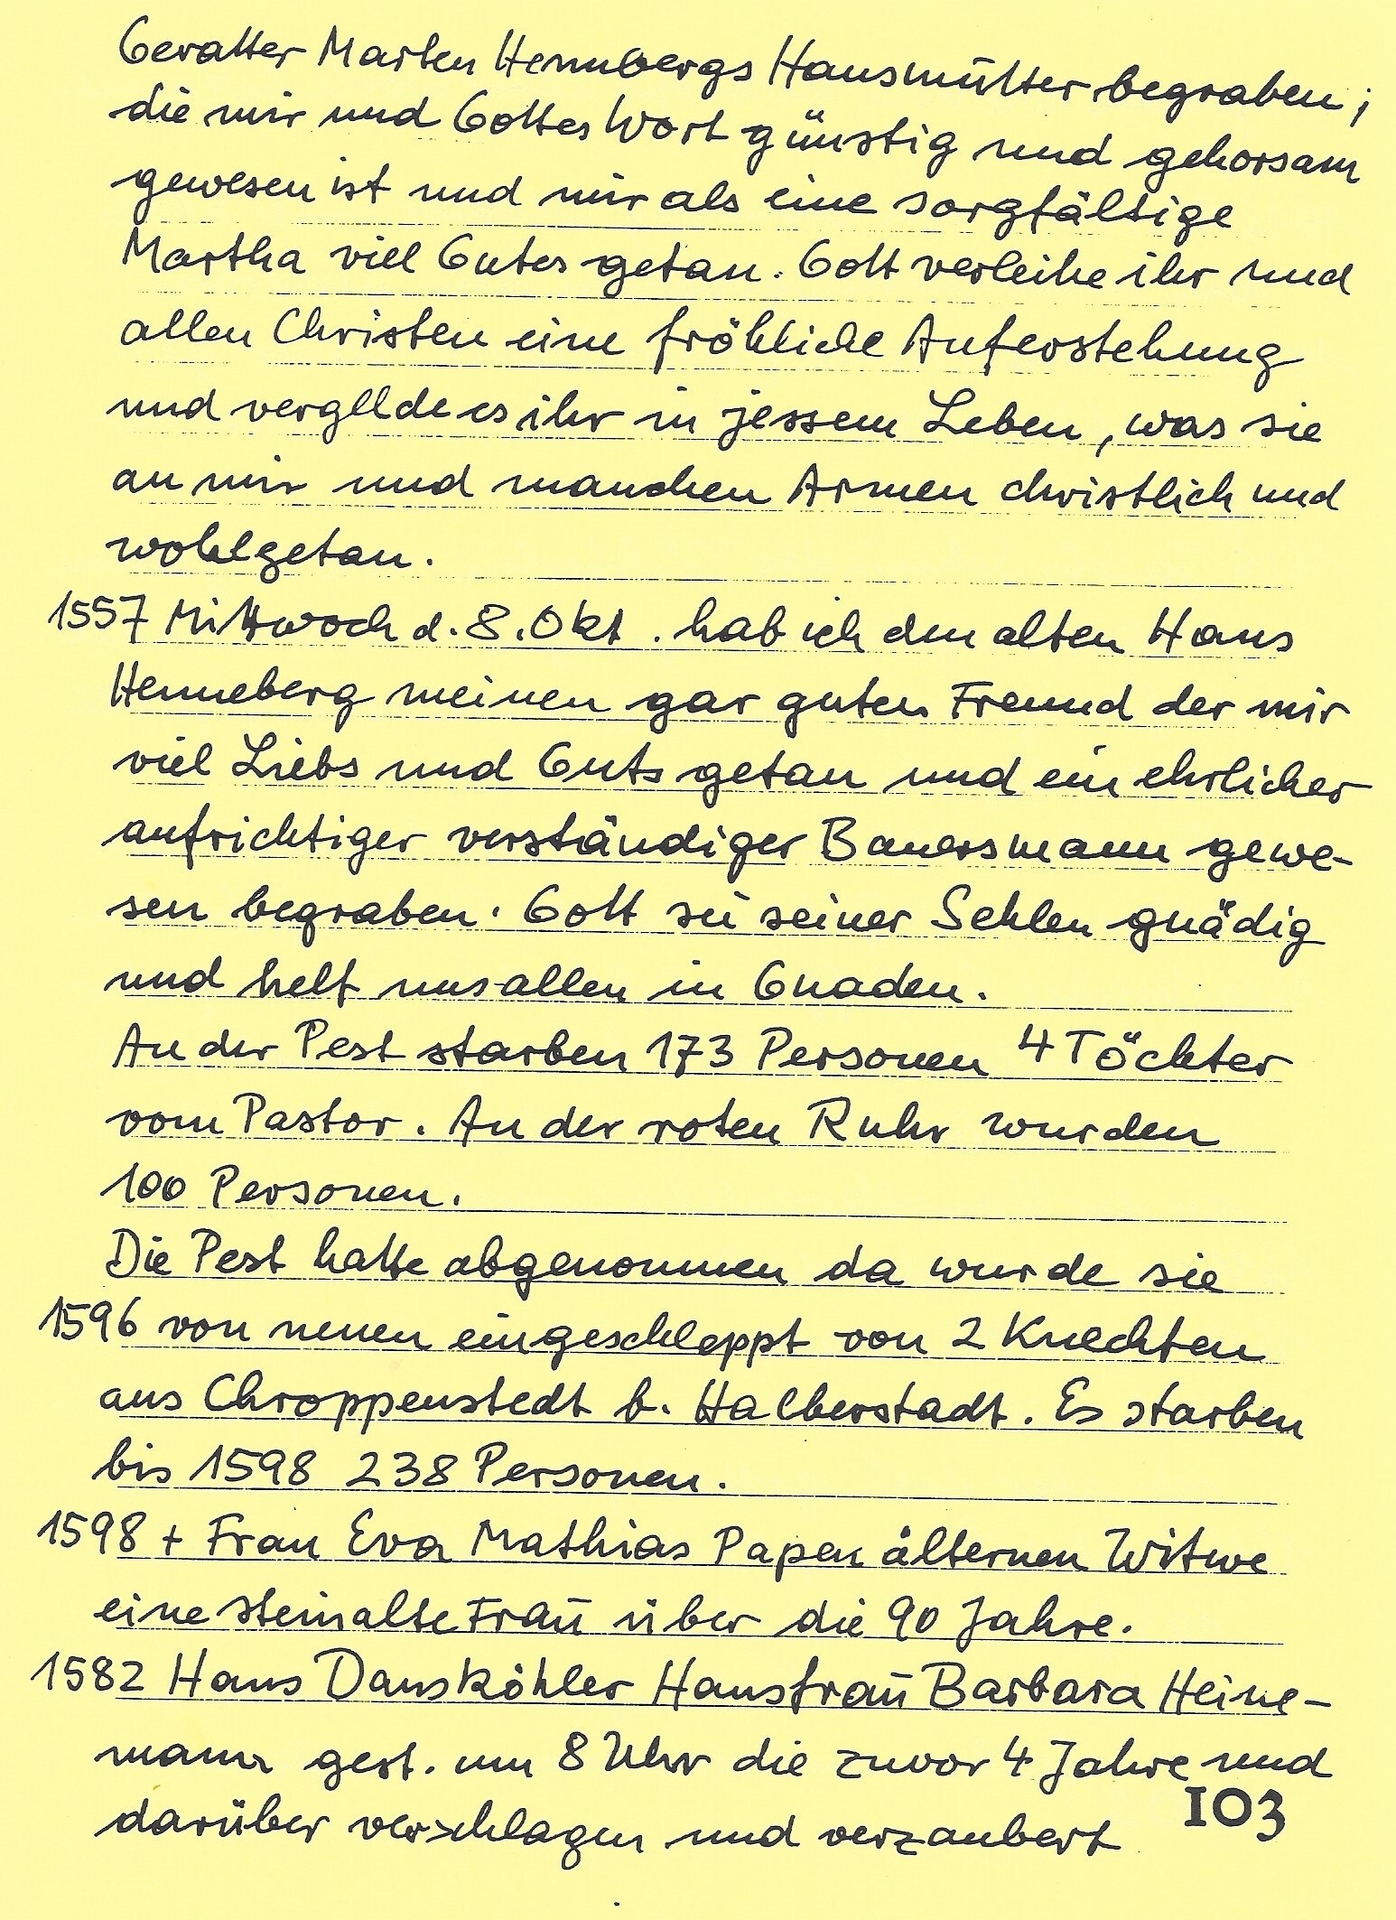 Gevatter Marten Hennbergs Hausmütter begraben;
die mir und Gottes Wort günstig und gehorsam
gewesen ist und mir als eine sorgfältige
Martha viel Gutes getan. Gott verleihe ihr und
allen Christen eine fröhliche Auferstehung
und verglldees ihr in jessem Leben, was sie
an mir und manchen Armen christlich und
wohlgetan.
1557 Mittwoch d. 8. Okt. hab ich den alten Hans
Henneberg meinen gar guten Freund der mir
viel Liebs und Guts getan und ein ehrlicher
aufrichtiger verständiger Bauersmann gewe-
sen begraben. Gott sei seiner Sehlen gnädig
und helf uns allen in Gnaden.
An der Pest starben 173 Personen 4 Töchter
vom Pastor. An der roten Ruhr wurden
100 Personen.
Die Pest hatte abgenommen da wurde sie
1596 von neuen eingeschleppt von 2 Knechten
aus Chroppenstedt b. Halberstadt. Es starben
bis 1598 238 Personen.
1598 + Frau Eva Mathias Papen älternen Witwe
eine steinalte Frau über die 90 Jahre.
1582 Hans Dansköhler Hausfrau Barbara Heine-
mann gest. um 8 Uhr die zuvor 4 Jahre und
darüber verschlagen und verzaubert
103